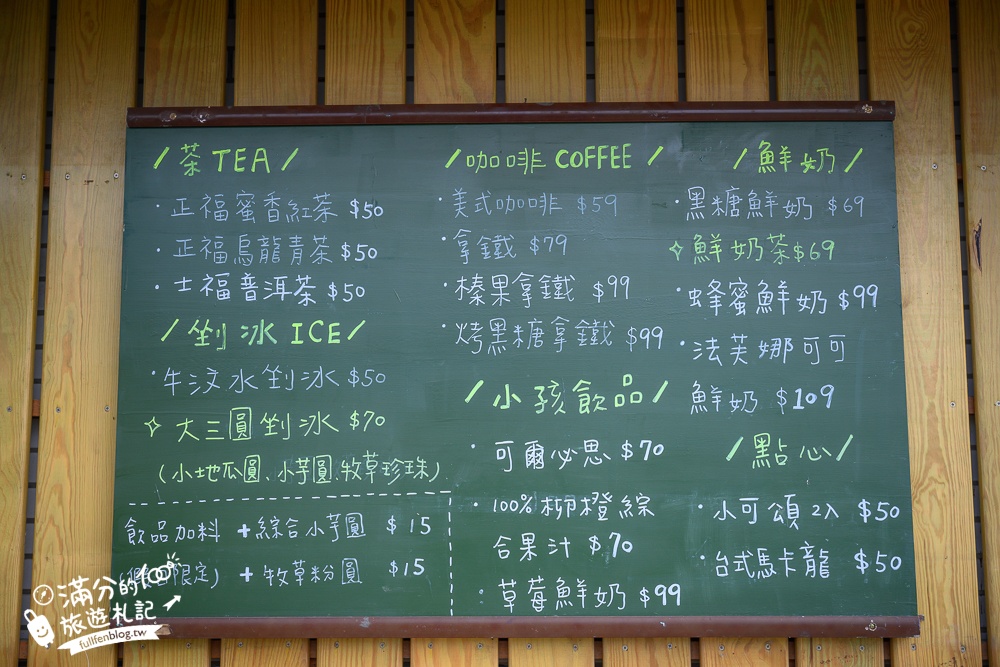 / 茶 TEA /
·正福蜜香紅茶 $50
·正福烏龍青茶 $50
·士福普洱茶 $50
/ 剉冰 ICE /
·牛汶水剉冰 $50
✧ 大三圓剉冰 $70
(小地瓜圓、小芋圓、牧草珍珠)
飲品加料 +綜合小芋圓 $15
限定) +牧草粉圓 $15
/ 咖啡 COFFEE /
·美式咖啡 $59
·拿鐵 $79
·榛果拿鐵 $99
·烤黑糖拿鐵 $99
/ 小孩飲品 /
·可爾必思 $70
·100%柳橙綜
合果汁 $70
·草莓鮮奶 $99
/ 鮮奶 /
·黑糖鮮奶 $69
✧鮮奶茶 $69
·蜂蜜鮮奶 $99
·法芙娜可可
鮮奶 $109
/ 點心 /
·小可頌2入 $50
·台式馬卡龍 $50
滿分的
旅遊札記
fullfenblog.tw